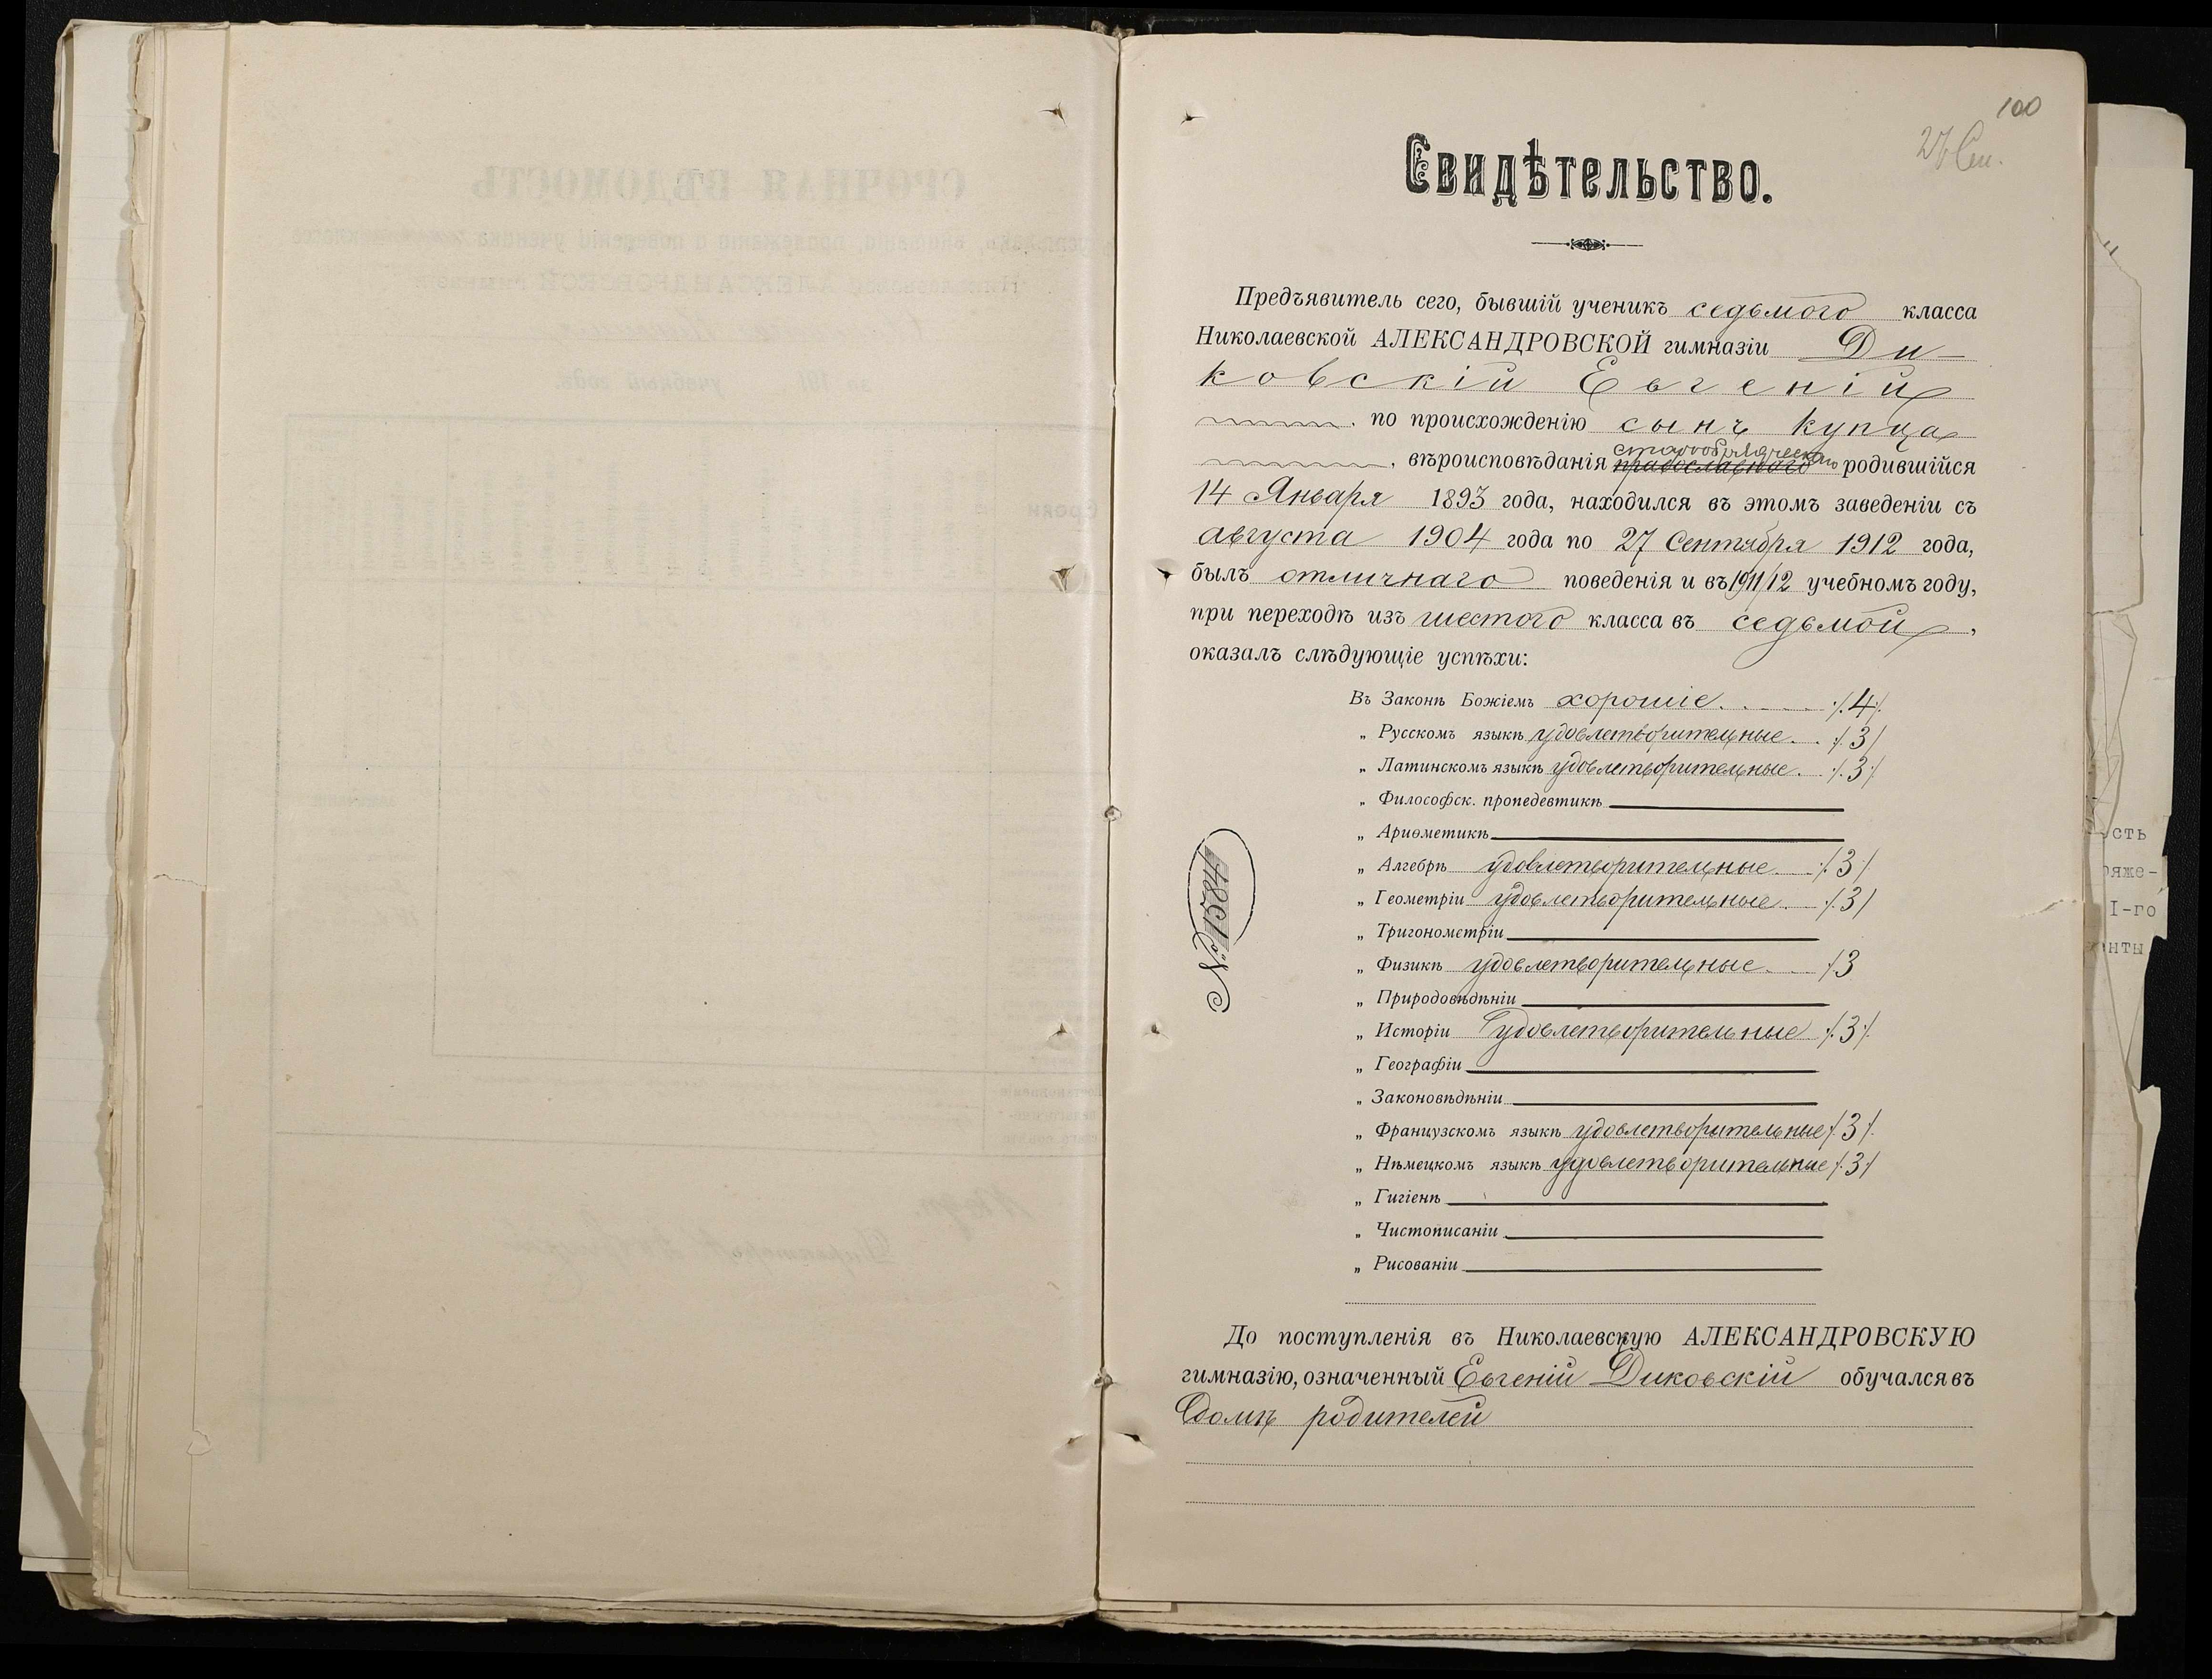 100
27 Сен.
Свидѣтельство.
Предъявитель сего, бывшій ученикъ седьмого класса
Николаевской АЛЕКСАНДРОВСКОЙ гимназіи Ди-
ковскій Евгеній
по происхожденію сынъ купца
старообрядческаго
, вѣроисповѣданія православнаго родившійся
14 Января 1893 года, находился въ этомъ заведеніи съ
августа 1904 года по 27 Сентября 1912 года,
былъ отличнаго поведенія и въ 1911/12 учебномъ году,
при переходѣ изъ шестого класса въ седьмой,
оказалъ слѣдующіе успѣхи:
Въ Законѣ Божіемъ хорошіе. /.4/.
„ Русскомъ языкѣ удовлетворительные. /.3/
„ Латинскомъ языкѣ удовлетворительные. /.3/
„ Философск. пропедевтикѣ
„ Ариѳметикѣ
„ Алгебрѣ удовлетворительные. /.3/.
„ Геометріи удовлетворительные. /.3/
„ Тригонометріи
„ Физикѣ удовлетворительные. /3
„ Природовѣдѣніи
„ Исторіи удовлетворительные /.3/.
„ Географіи
„ Законовѣдѣніи
„ Французскомъ языкѣ удовлетворительные /.3/.
„ Нѣмецкомъ языкѣ удовлетворительные /.3/
„ Гигіенѣ
„ Чистописаніи
„ Рисованіи
№ 1584
До поступленія въ Николаевскую АЛЕКСАНДРОВСКУЮ
гимназію, означенный Евгеній Диковскій обучался въ
домѣ родителей
сть
яже-
I-го
нты